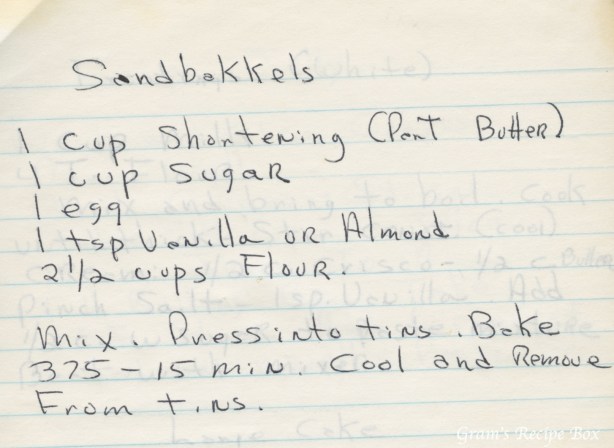 Sandbakkels
1 cup Shortening (Part Butter)
1 cup Sugar
1 egg
1 tsp Vanilla or Almond
2 1/2 cups Flour.
Mix. Press into tins. Bake
375 - 15 min. Cool and Remove
From tins.
Gram's Recipe Box